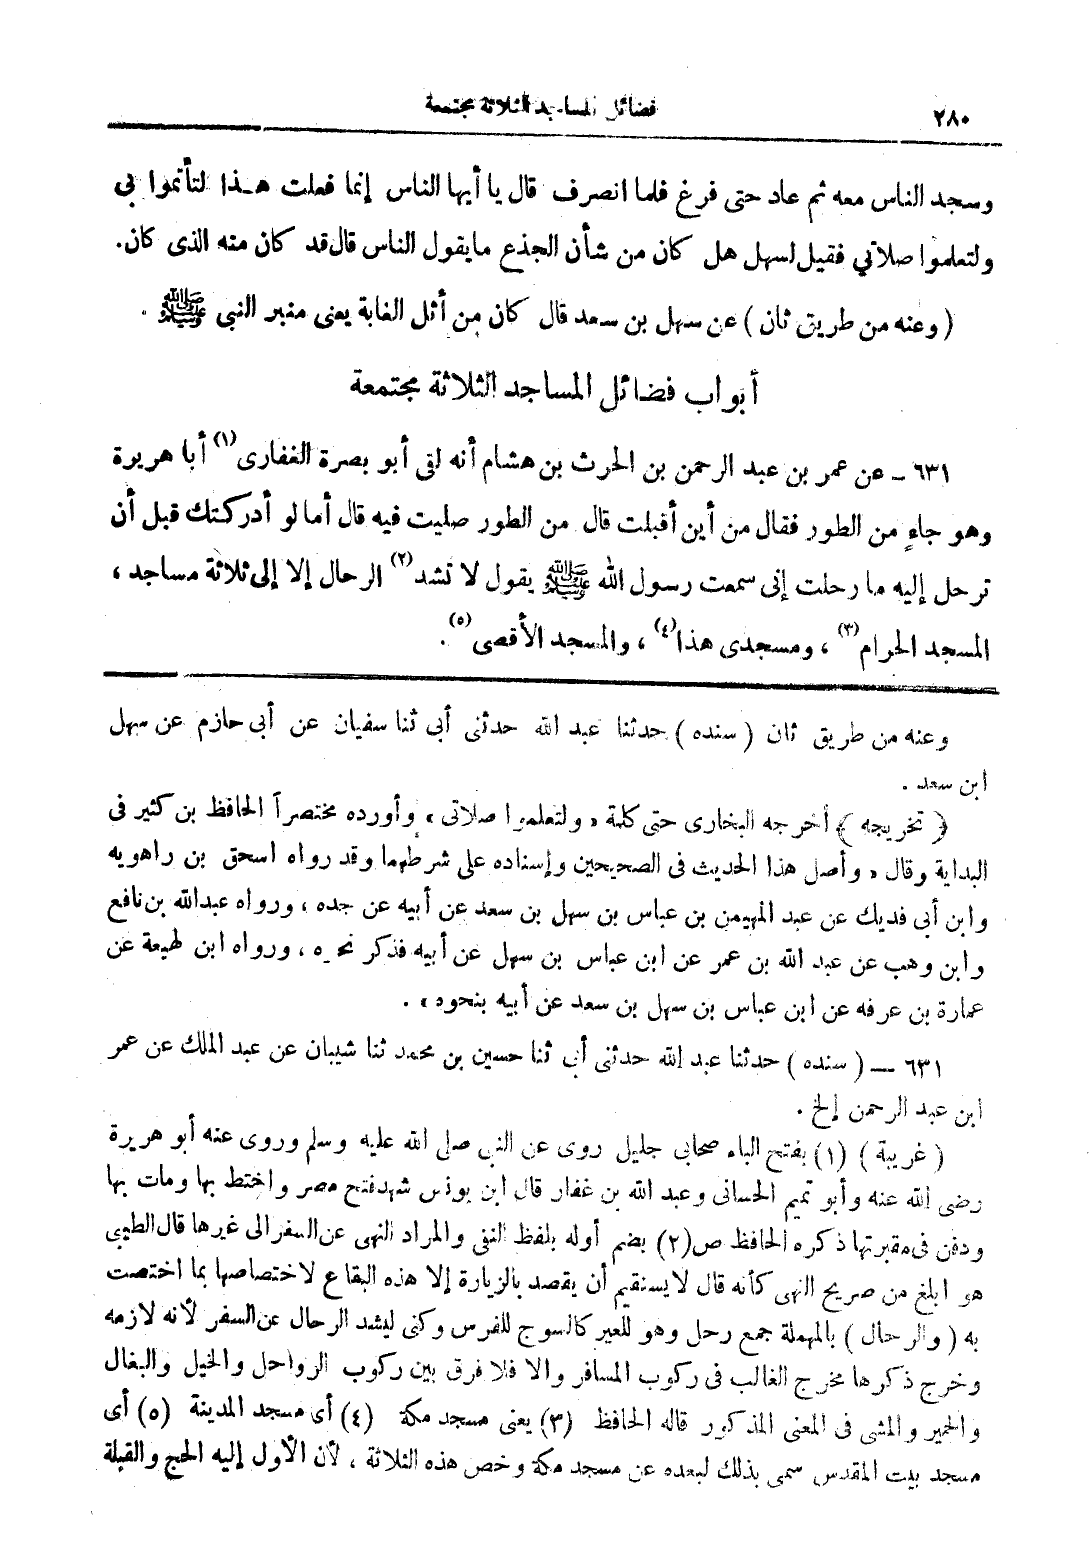 ٢٨٠
فضائل المساجد الثلاثة مجتمعة
وسجد الناس معه ثم عاد حتى فرغ فلما انصرف قال يا أيها الناس إنما فعلت هـذا لتأتموا بي
ولتعلموا صلاتي فقيل لسهل هل كان من شأن الجذع ما يقول الناس قال قد كان منه الذى كان.
(وعنه من طريق ثان) عن سهل بن سعد قال كان من أثل الغابة يعنى منبر النبى ﷺ .
أبواب فضائل المساجد الثلاثة مجتمعة
٦٣١ – عن عمر بن عبد الرحمن بن الحرث بن هشام أنه لقى أبو بصرة الغفارى(١) أبا هريرة
وهو جاءٍ من الطور فقال من أين أقبلت قال من الطور صليت فيه قال أما لو أدركتك قبل أن
ترحل إليه ما رحلت إنى سمعت رسول الله ﷺ يقول لا تشد(٢) الرحال إلا إلى ثلاثة مساجد ،
المسجد الحرام(٣) ، ومسجدى هذا(٤) ، والمسجد الأقصى(٥) .
وعنه من طريق ثان (سنده) حدثنا عبد الله حدثنى أبى ثنا سفيان عن أبى حازم عن سهل
ابن سعد .
﴿تخريجه﴾ أخرجه البخارى حتى كلمة «ولتعلموا صلاتى» وأورده مختصراً الحافظ بن كثير فى
البداية وقال «وأصل هذا الحديث فى الصحيحين وإسناده على شرطهما وقد رواه اسحق بن راهويه
وابن أبى فديك عن عبد المهيمن بن عباس بن سهل بن سعد عن أبيه عن جده ، ورواه عبدالله بن نافع
وابن وهب عن عبد الله بن عمر عن ابن عباس بن سهل عن أبيه فذكر نحوه ، ورواه ابن لهيعة عن
عمارة بن عرفه عن ابن عباس بن سهل بن سعد عن أبيه بنحوه» .
٦٣١ — (سنده) حدثنا عبد الله حدثنى أبى ثنا حسين بن محمد ثنا شيبان عن عبد الملك عن عمر
ابن عبد الرحمن إلخ .
(غريبة) (١) بفتح الباء صحابى جليل روى عن النبى صلى الله عليه وسلم وروى عنه أبو هريرة
رضى الله عنه وأبو تميم الحسانى وعبد الله بن غفار قال ابن يونس شهد فتح مصر واختط بها ومات بها
ودفن فى مقبرتها ذكره الحافظ ص (٢) بضم أوله بلفظ النفى والمراد النهى عن السفر الى غيرها قال الطيبى
هو ابلغ من صريح النهى كأنه قال لا يستقيم أن يقصد بالزيارة إلا هذه البقاع لاختصاصها بما اختصت
به (والرحال) بالمهملة جمع رحل وهو للعير كالسوج للفرس وكنى ليشد الرحال عن السفر لأنه لازمه
وخرج ذكرها مخرج الغالب فى ركوب المسافر والا فلا فرق بين ركوب الرواحل والخيل والبغال
والحمير والمشى فى المعنى المذكور قاله الحافظ (٣) يعنى مسجد مكة (٤) أى مسجد المدينة (٥) أى
مسجد بيت المقدس سمى بذلك لبعده عن مسجد مكة وخص هذه الثلاثة ، لأن الأول إليه الحج والقبلة